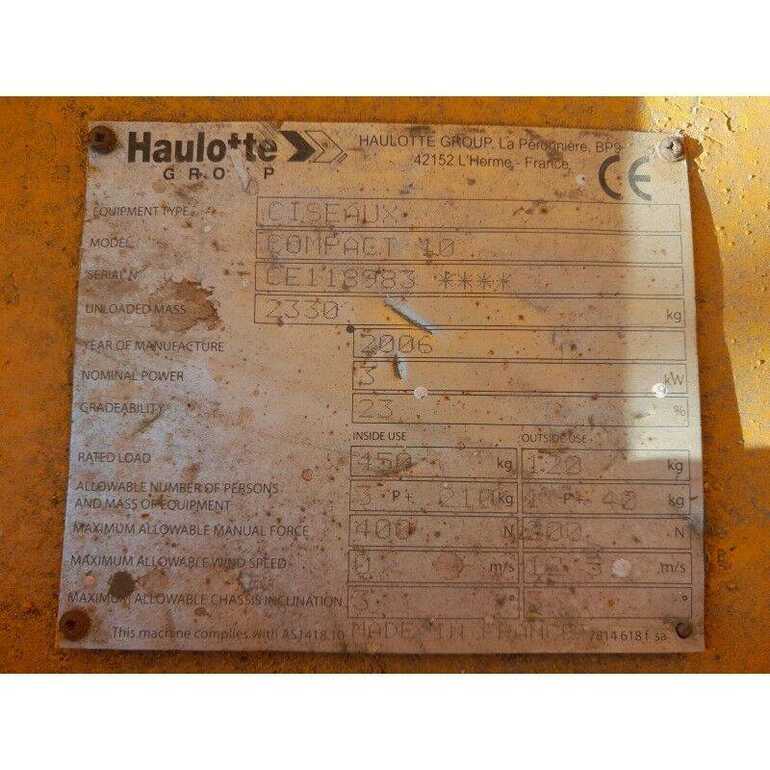 Haulotte
GROUP
HAULOTTE GROUP, La Péronnière, BP9
42152 L'Horme - France
CE
EQUIPMENT TYPE CISEAUX
MODEL COMPACT 10
SERIAL N° CE118983 ****
UNLOADED MASS 2330 kg
YEAR OF MANUFACTURE 2006
NOMINAL POWER 3 kW
GRADEABILITY 23 %
INSIDE USE OUTSIDE USE
RATED LOAD 450 kg 120 kg
ALLOWABLE NUMBER OF PERSONS
AND MASS OF EQUIPMENT 3 P+ 210 kg 1 P+ 40 kg
MAXIMUM ALLOWABLE MANUAL FORCE 400 N N
MAXIMUM ALLOWABLE WIND SPEED 0 m/s m/s
MAXIMUM ALLOWABLE CHASSIS INCLINATION 3 ° °
This machine complies with AS1418.10 MADE IN FRANCE 7814 618 f sa